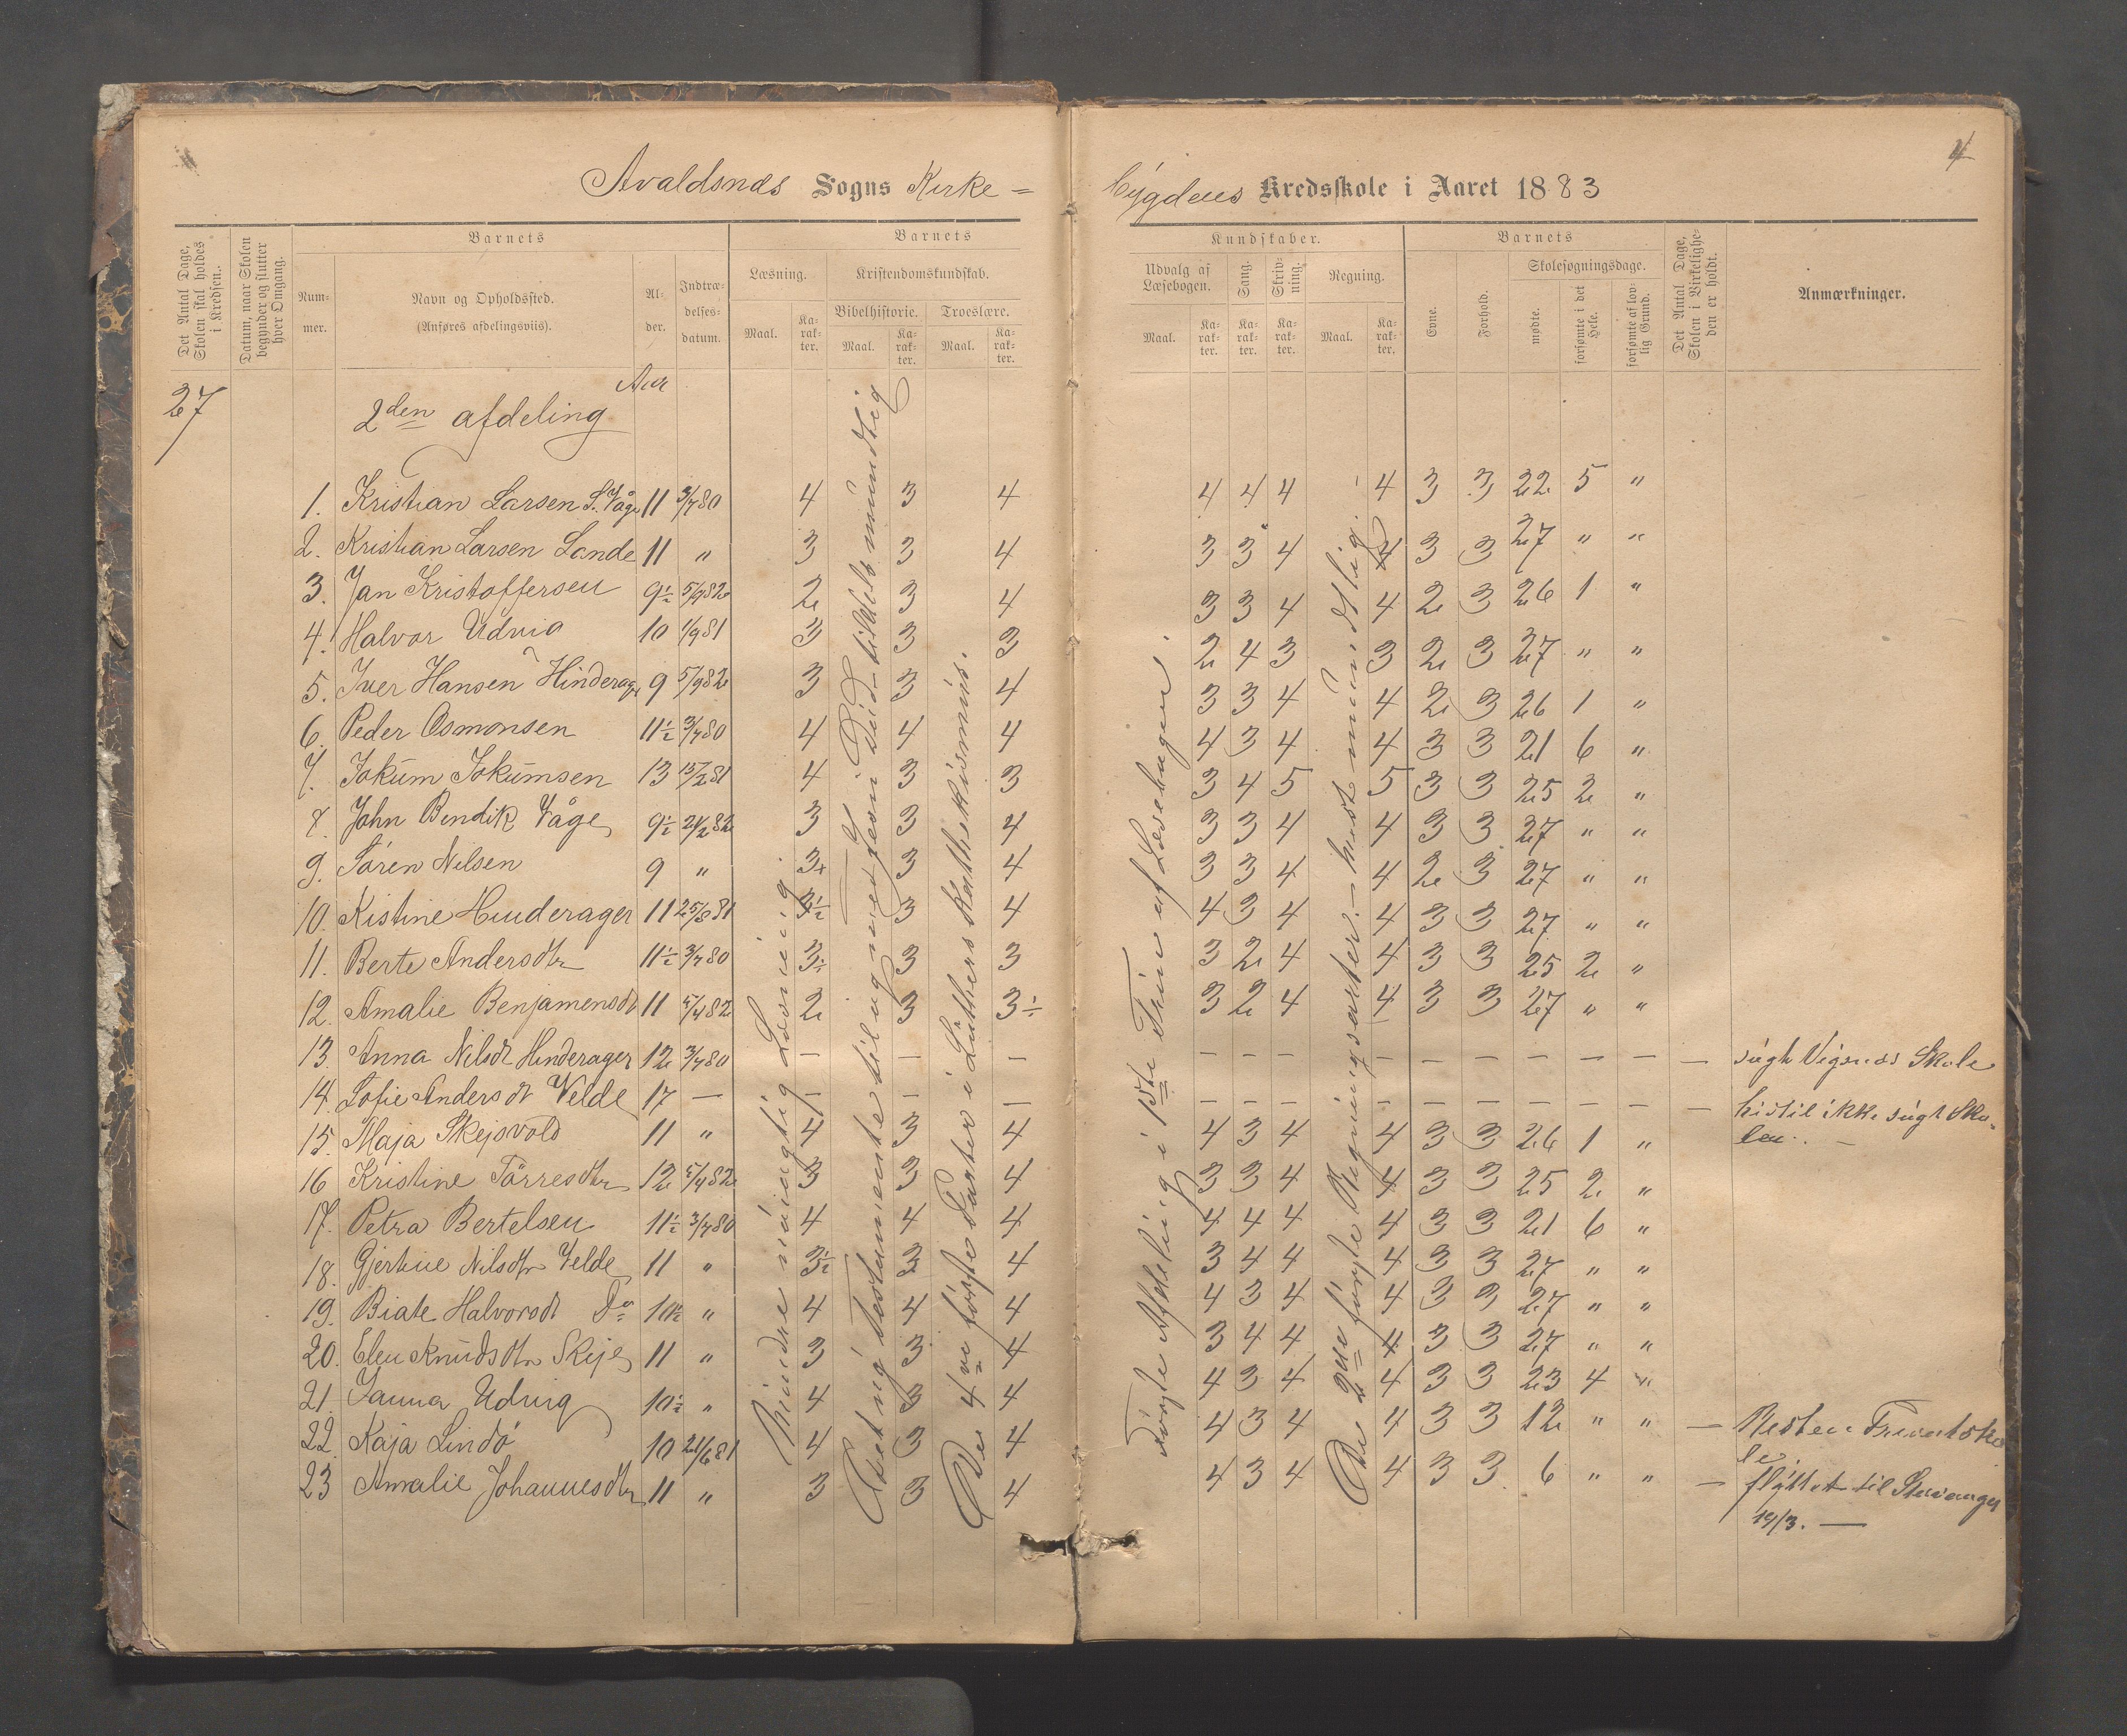 4
Avaldsnæs Sogns Kirke=
bygdens Kredsskole i Aaret 1883
Det Antal Dage, Skolen skal holdes i Kredsen.
Datum, naar Skolen begynder og slutter hver Omgang.
Barnets
Nummer.
Navn og Opholdssted.
(Anføres afdelingsviis).
Alder.
Indtrædelsesdatum.
Barnets
Læsning.
Maal.
Karakter.
Kristendomskundskab.
Bibelhistorie.
Maal.
Karakter.
Troeslære.
Maal.
Karakter.
Kundskaber.
Udvalg af Læsebogen.
Maal.
Karakter.
Sang.
Karakter.
Skrivning.
Karakter.
Regning.
Maal.
Karakter.
Barnets
Evne.
Forhold.
Skolesøgningsdage.
mødte.
forsømte i det Hele.
forsømte af lovlig Grund.
Det Antal Dage, Skolen i Virkeligheden er holdt.
Anmærkninger.
27
Aar
2den afdeling
1. Kristian Larsen S. Våge 11 3/7 80 4 3 4 4 4 4 4 3 3 22 5 "
2. Kristian Larsen Lande 11 " 3 3 4 3 3 4 4 3 3 27 " "
3. Jan Kristoffersen 9½ 5/9 82 2 3 4 3 3 4 4 2 3 26 1 "
4. Halvor Udvig 10 1/9 81 3 3 3 2 4 3 3 2 3 27 " "
5. Iver Hansen Hinderager 9 5/9 82 3 3 4 3 3 4 4 2 3 26 1 "
6. Peder Osmonsen 11½ 3/7 80 4 4 4 4 3 4 4 3 3 21 6 "
7. Jokum Jokumsen 13 15/2 81 4 3 3 3 4 5 5 3 3 25 2 "
8. John Bendik Våge 9½ 21/2 82 3 3 4 3 3 4 4 3 3 27 " "
9. Sören Nilsen 9 " 3+ 3 4 3 3 4 4 2 3 27 " "
10. Kistine Hinderager 11 25/8 81 3½ 3 4 4 3 4 4 3 3 27 " "
11. Berte Andersdtr 11½ 3/7 80 3÷ 3 3 3 2 4 4 3 3 25 2 "
12. Amalie Benjamensdt 11 5/4 82 2 3 3÷ 3 2 4 4 3 3 27 " "
13. Anna Nilsdt Hinderager 12 3/7 80 – – – – – – – – – – – – – søgt Vigsnæs Skole
14. Sofie Andersdt Velde 17 – – – – – – – – – – – – – – hidtil ikke søgt Sko-
len. –
15. Maja Skejsvold 11 " 4 3 4 4 3 4 4 3 3 26 1 "
16 Kristine Törresdtr 12 5/4 82 3 3 4 3 3 4 4 3 3 25 2 "
17. Petra Bertelsen 11½ 3/7 80 4 4 4 4 4 4 4 3 3 21 6 "
18. Gjertine Nilsdtr Velde 11 " 3½ 3 4 3 4 4 4 3 3 27 " "
19. Biate Halvorsdt Do 10½ " 4 4 4 4 3 4 4 3 3 27 " "
20. Elen Knudsdtr Skeje 11 " 3 3 4 3 4 4 4 3 3 27 " "
21. Janna Udvig 10½ " 4 3 4 4 3 4 4 3 3 23 4 "
22. Kaja Lindö 10 21/6 81 4 3 4 4 3 4 4 3 3 12 " " – Resten Privatsko
le.
23 Amalie Johannesdtr 11 " 3 3 4 4 3 4 4 3 3 6 " " – flyttet til Stavanger
19/3. –
Mindre nöiagtig Læsning.
Det ny Testamente til og med Jesu Död tildels mundtlig
De 4re förste Parter i Luthers Kathekismus.
förste Afdeling i 1ste Trin af Læsebogen.
De 2de förste Regningsarter. – mest mundtlig.